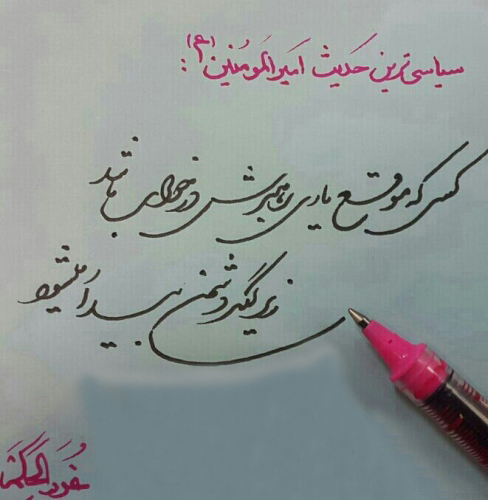 سیاسی‌ترین حدیث امیرالمومنین (ع) :
کسی که موقع یاری رهبرش در خواب باشد
زیر لگد دشمن بیدار میشود
غررالحکم